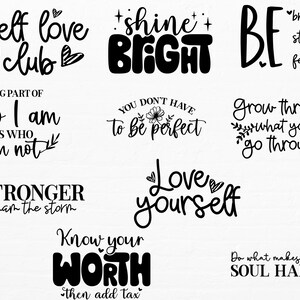 elf love
club
shine
BRiGHT
B.E
G PART OF
I am
S WHO
not
YOU DON'T HAVE
to be perfect
Grow thro
what you
go throu
TRONGER
am the storm
Love
yourself
Know your
WORTH
then add tax
Do what makes
SOUL HA